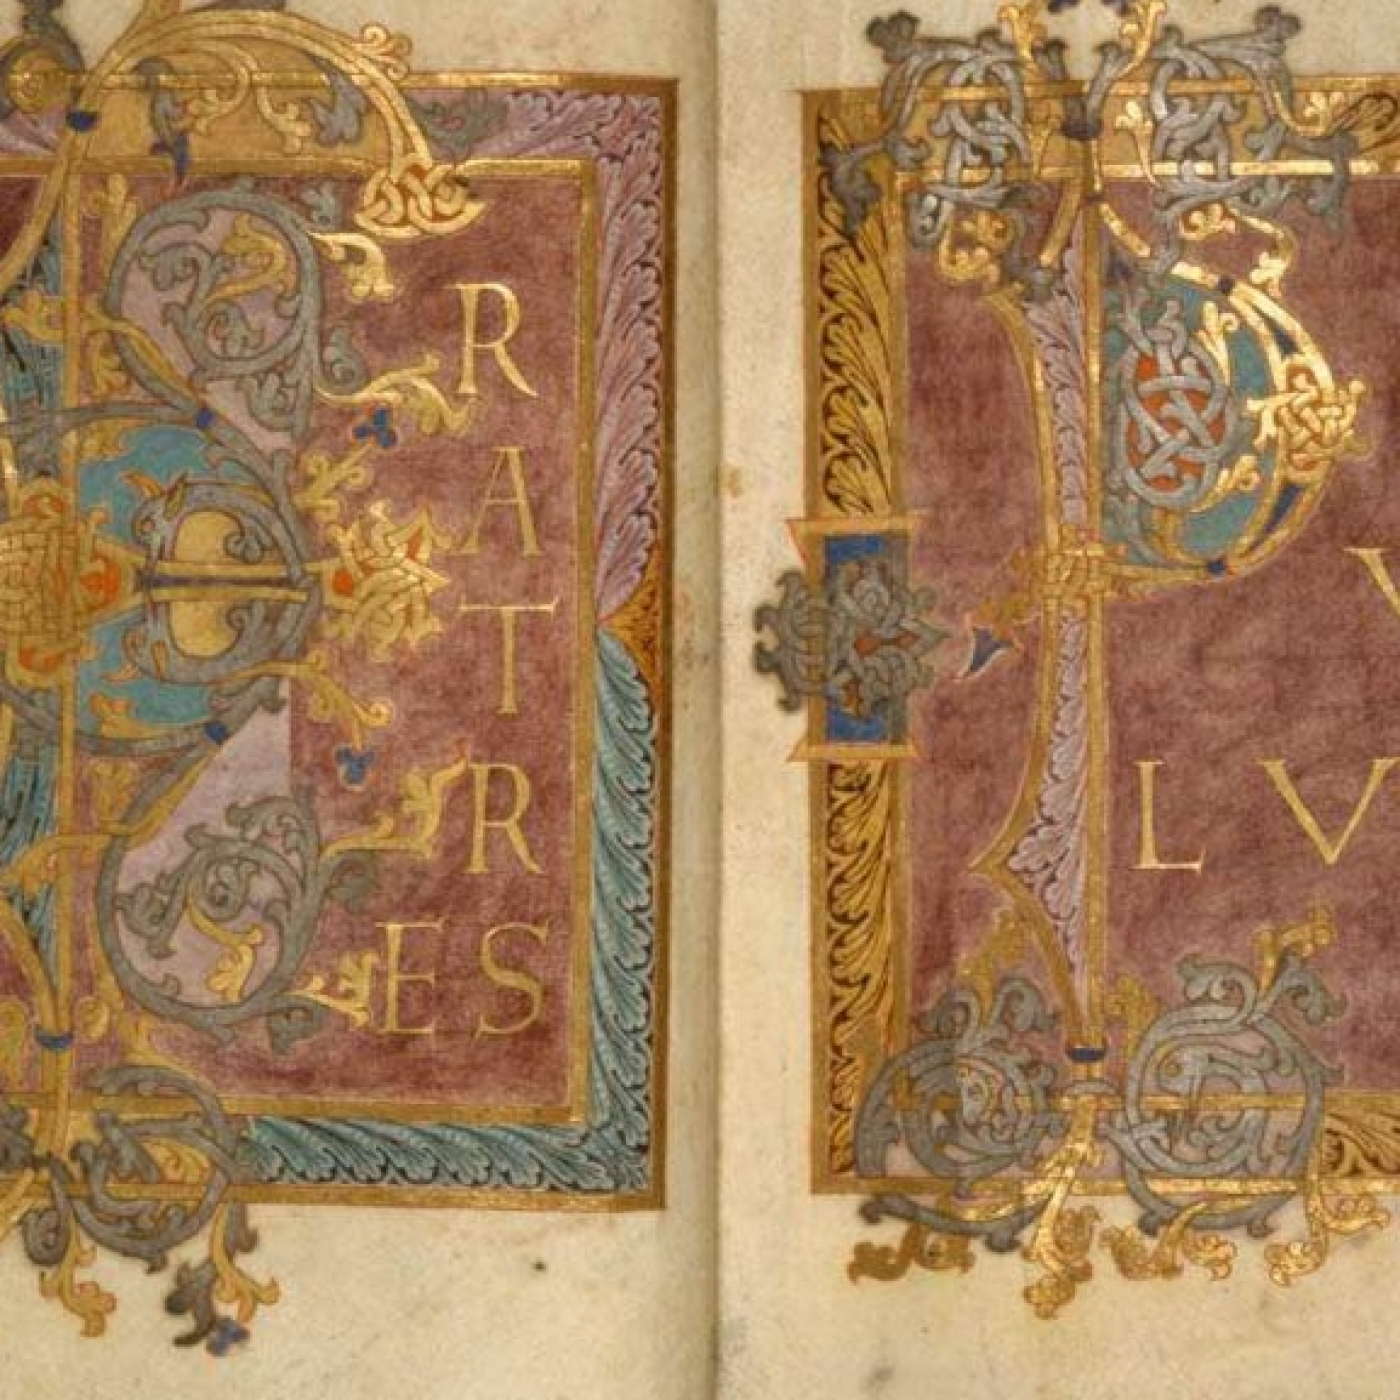 R
A
T
R
ES
P
V
LV